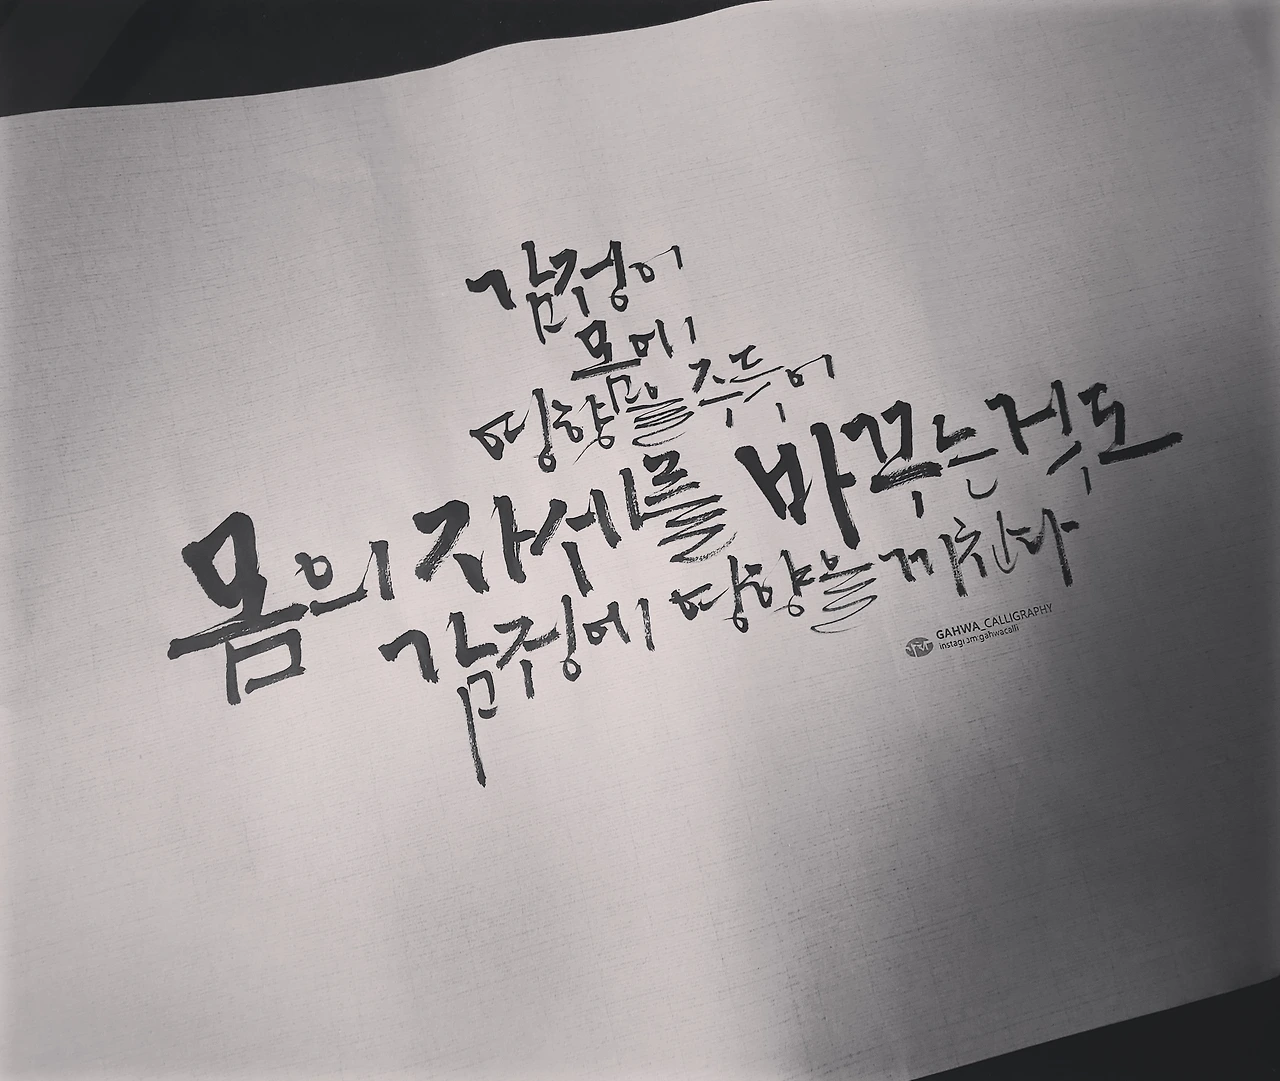 감정이
몸에
영향을 주듯이
몸의 자세를 바꾸는것도
감정에 영향을 끼친다
GAHWA_CALLIGRAPHY
instagram:gahwacalli